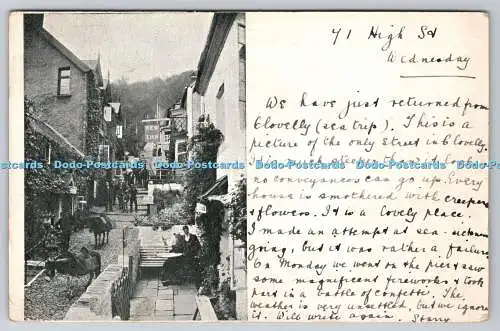 71 High St
Wednesday
We have just returned from
Clovelly (sea trip). This is a
picture of the only street in Clovelly.
Dodo-Postcards.com Dodo-Postcards.com Dodo-Postcards.com Dodo-Postcards.com Dodo-Postcards.com
no conveyances can go up. Every
house is smothered with creepers
& flowers. It is a lovely place.
I made an attempt at sea-sickness
going, but it was rather a failure.
On Monday we went on the pier & saw
some magnificent fireworks & took
part in a battle of confetti. The
weather is very unsettled, but we ignore
it. Will write again.